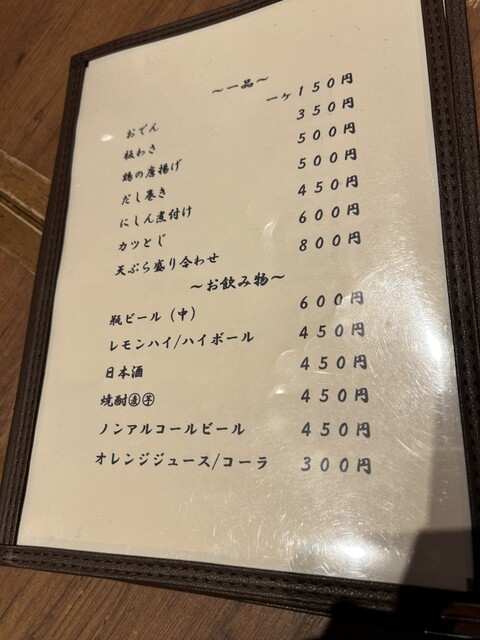 ～一品～
おでん 一ヶ150円
板わさ 350円
鶏の唐揚げ 500円
だし巻き 500円
にしん煮付け 450円
カツとじ 600円
天ぷら盛り合わせ 800円
～お飲み物～
瓶ビール（中） 600円
レモンハイ/ハイボール 450円
日本酒 450円
焼酎㊎麦芋 450円
ノンアルコールビール 450円
オレンジジュース/コーラ 300円